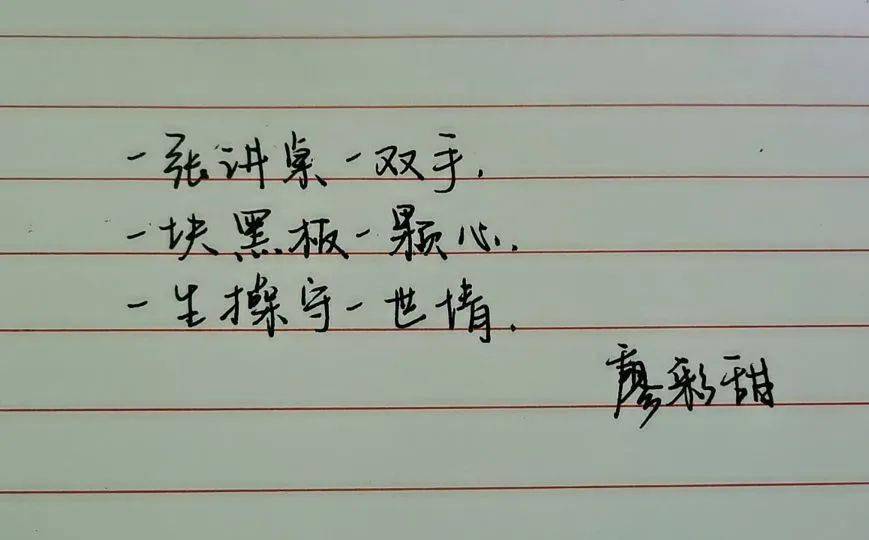 一张讲桌一双手，
一块黑板一颗心，
一生操守一世情．
廖彩甜